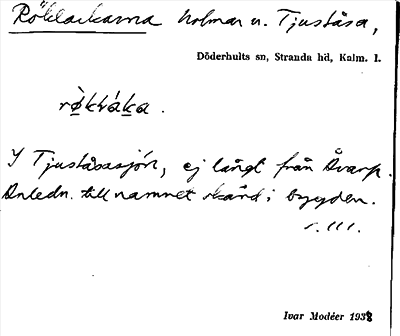 Röklackarna holmar n. Tjuståsa,
Döderhults sn, Stranda hd, Kalm. l.
I Tjuståsasjön, ej långt från Åvarp.
Anledn. till namnet okänd i bygden.
s. III.
Ivar Modéer 1938